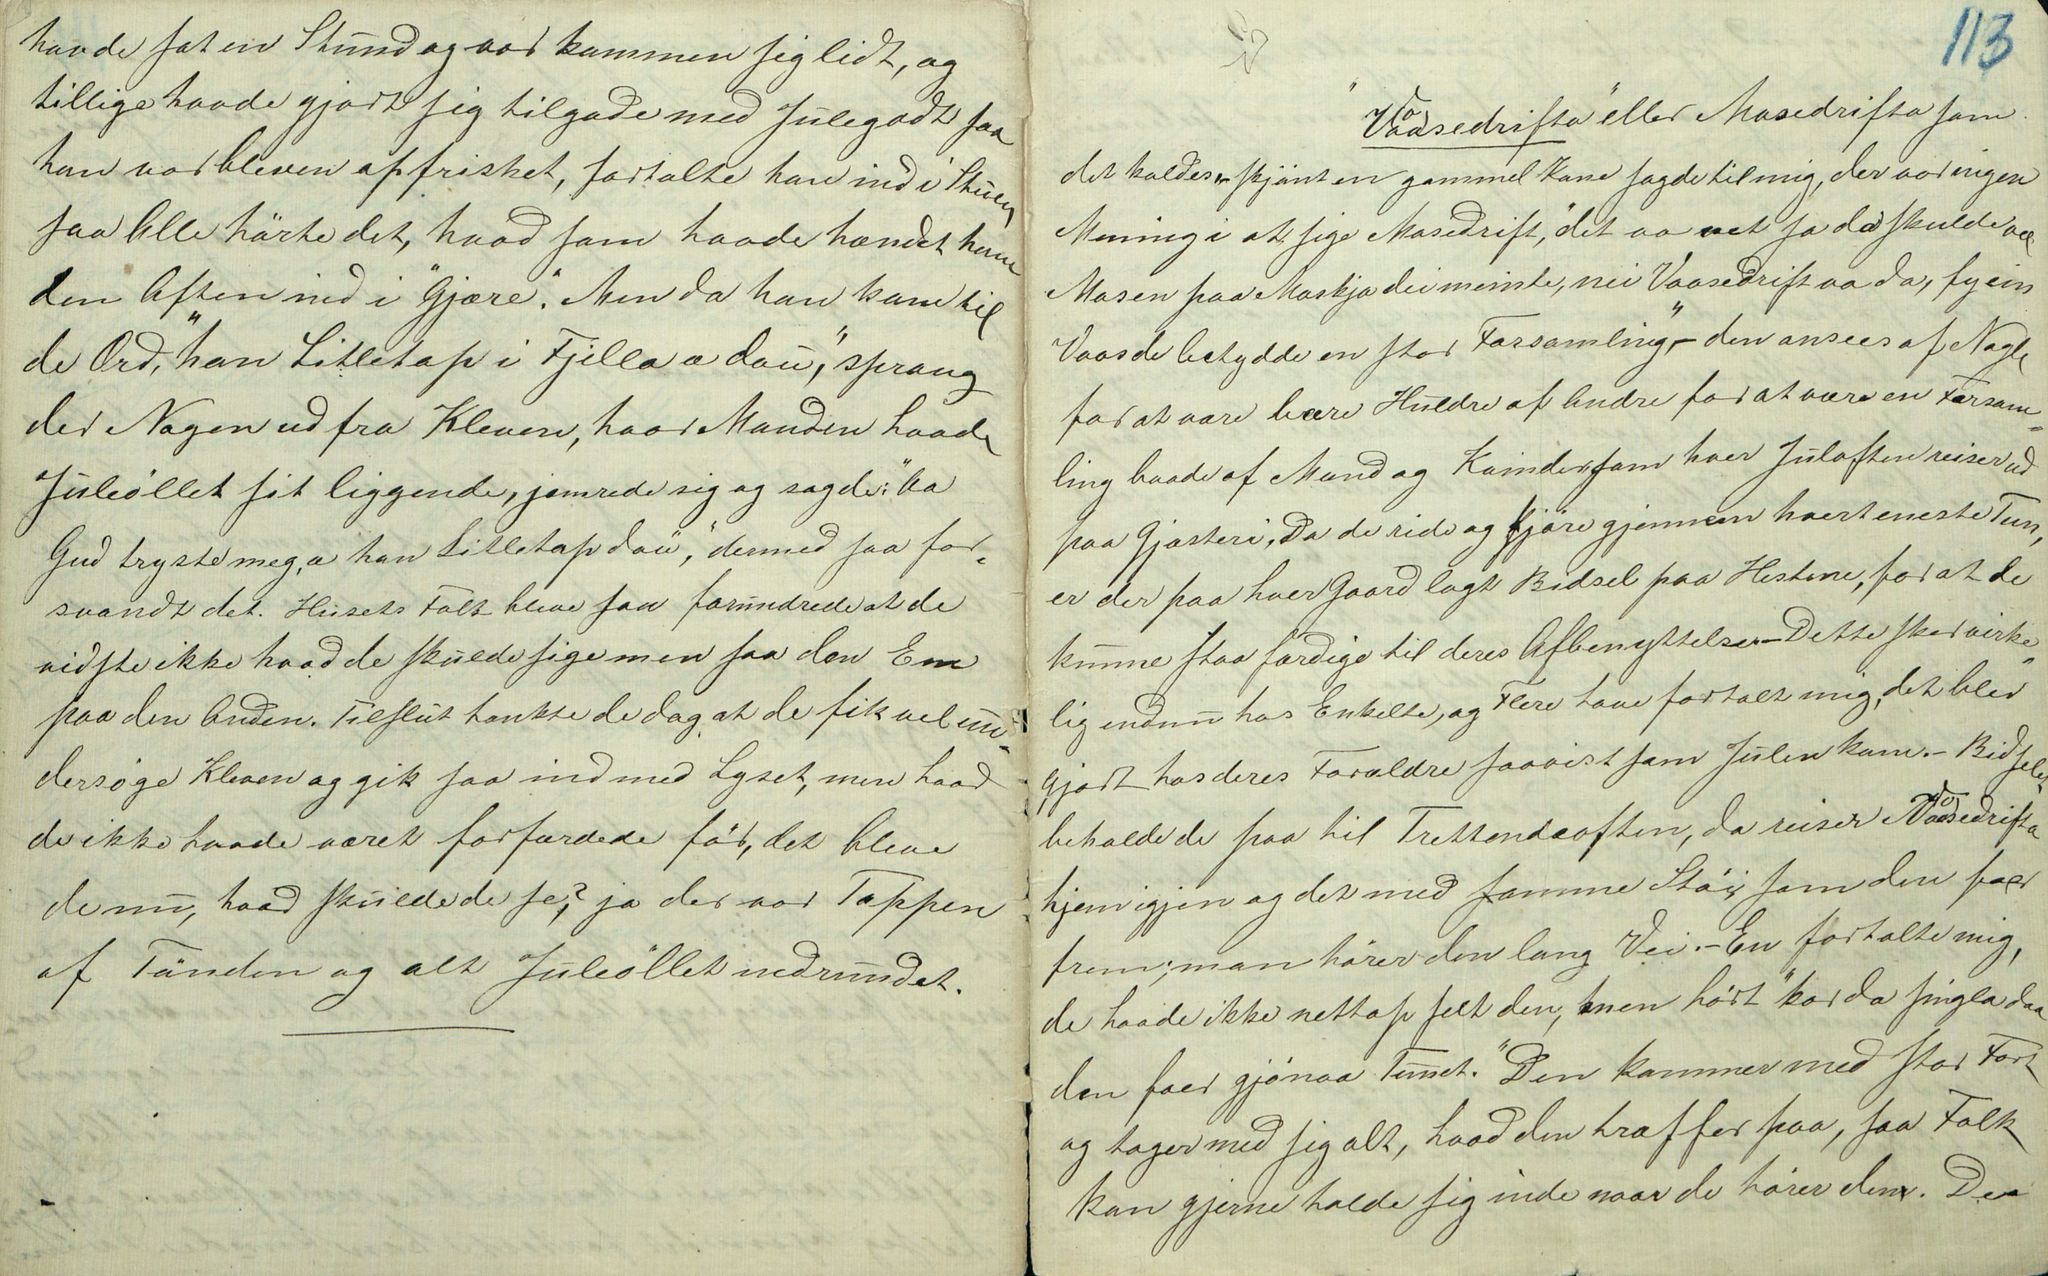 havde sat en Stund og var kommen sig lidt, og
tillige havde gjort sig tilgode med Julegodt saa
han var bleven opfrisket, fortalte han ind i Stuen
saa Alle hörte det, hvad som havde hændet ham
den Aften ind i "Gjære". Men da han kom til
de Ord, "han Litletop i Fjello a dau", sprang
der Nogen ud fra Kleven, hvor Manden havde
Juleöllet sit liggende, jamrede sig og sagde: "Aa
Gud tryste meg, a han Litletop dau," dermed saa for-
svandt det. Husets Folk bleve saa forundrede at de
vidste ikke hvad de skulde sige men saa den Ene
paa den Anden. Tilslut tænkte de dog at de fik vel un-
dersøge Kleven og gik saa ind med Lyset, men hvad
de ikke havde været forfærdede för, det bleve
de nu, hvad skulde de se? ja der var Tappen
af Tönden og alt Juleöllet udrundet.
113
"Vaasedrifta" eller Masedrifta som
det kaldes, skjönt en gammel Kone sagde til mig, der var ingen
Mening i at sige Masedrift, "det va net so dei skulde ve
Masen paa Maskja dei meinte, nei Vaasedrift va da, fy ein
Vaase betydde en stor Forsamling", - den ansees af Nogle
for at være bare Huldre af Andre for at være en Forsam-
ling baade af Mand og Kvinder, som hver Juleaften reiser ud
paa Gjæsteri. Da de ride og kjöre gjennem hvert eneste Tun,
er der paa hver Gaard lagt Bidsel paa Hestene, for at de
kunne staa færdige til deres Afbenyttelse - Dette sker virke-
lig endnu hos Enkelte, og Flere have fortalt mig, det blev
gjort hos deres Forældre saavist som Julen kom. - Bidselet
beholde de paa til Trettendeaften, da reiser Vaasedrifta
hjem igjen og det med samme Stöij som den foer
frem; man hörer den lang Vei. - En fortalte mig,
de havde ikke nettop seet den, men hört "kor da singla daa
den foer gjönaa Tunet." Den kommer med stor Fart
og tager med sig alt, hvad den træffer paa, saa Folk
kan gjerne holde sig inde naar de hörer den. De